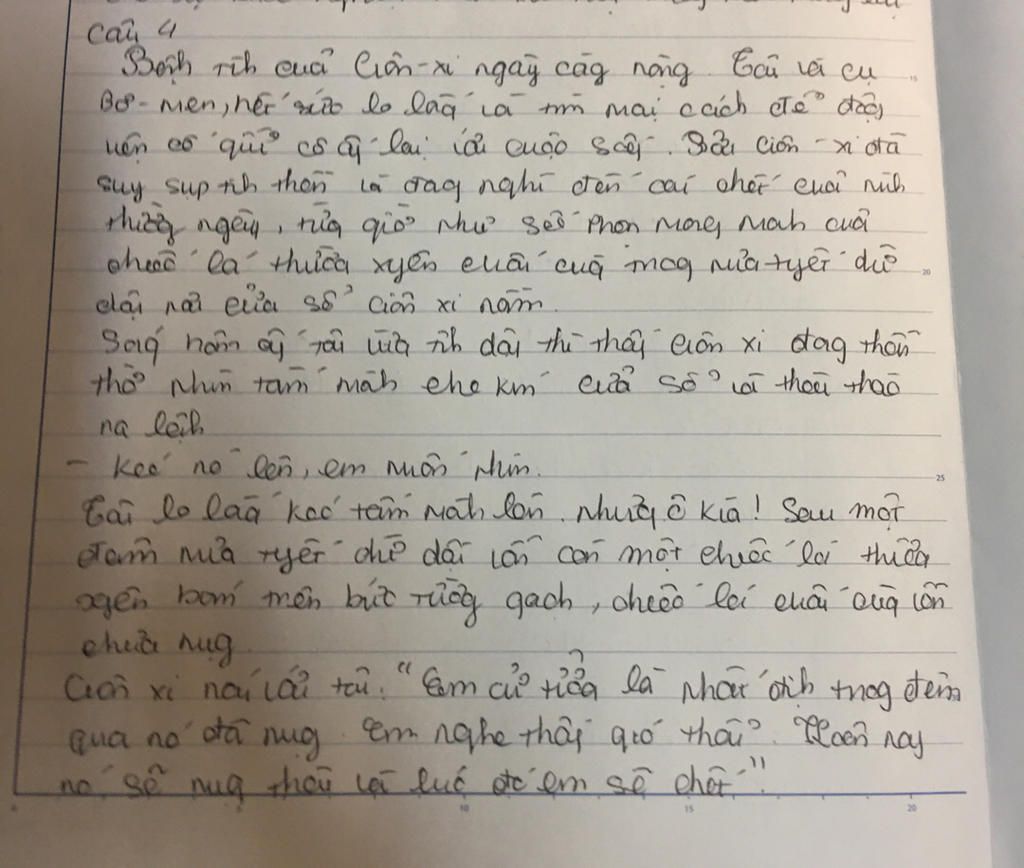 Câu 4
Bệnh tình của Giôn-xi ngày càng nặng. Tôi và cụ
Bơ-men, hết sức lo lắng và tìm mọi cách để động
viên cô quỉ cô ấy lại với cuộc sống. Bởi Giôn-xi đã
suy sụp tinh thần và đang nghĩ đến cái chết của mình
thường ngày, từng giờ như số phận mong manh của
chiếc lá thường xuyên cuối cùng trong mưa tuyết dữ
dội nơi cửa sổ Giôn xi nằm.
Sáng hôm ấy tôi vừa tỉnh dậy thì thấy Giôn xi đang thẫn
thờ nhìn tấm mành che kín cửa sổ và thều thào
ra lệnh
- Kéo nó lên, em muốn nhìn.
Tôi lo lắng kéo tấm mành lên. Nhưng ô kìa! Sau một
đêm mưa tuyết dữ dội vẫn còn một chiếc lá thường
xuyên bám trên bức tường gạch, chiếc lá cuối cùng vẫn
chưa rụng.
Giôn xi nói với tôi: "Em cứ tưởng là nhất định trong đêm
qua nó đã rụng. Em nghe thấy gió thổi. Hôm nay
nó sẽ rụng thôi và lúc đó em sẽ chết."